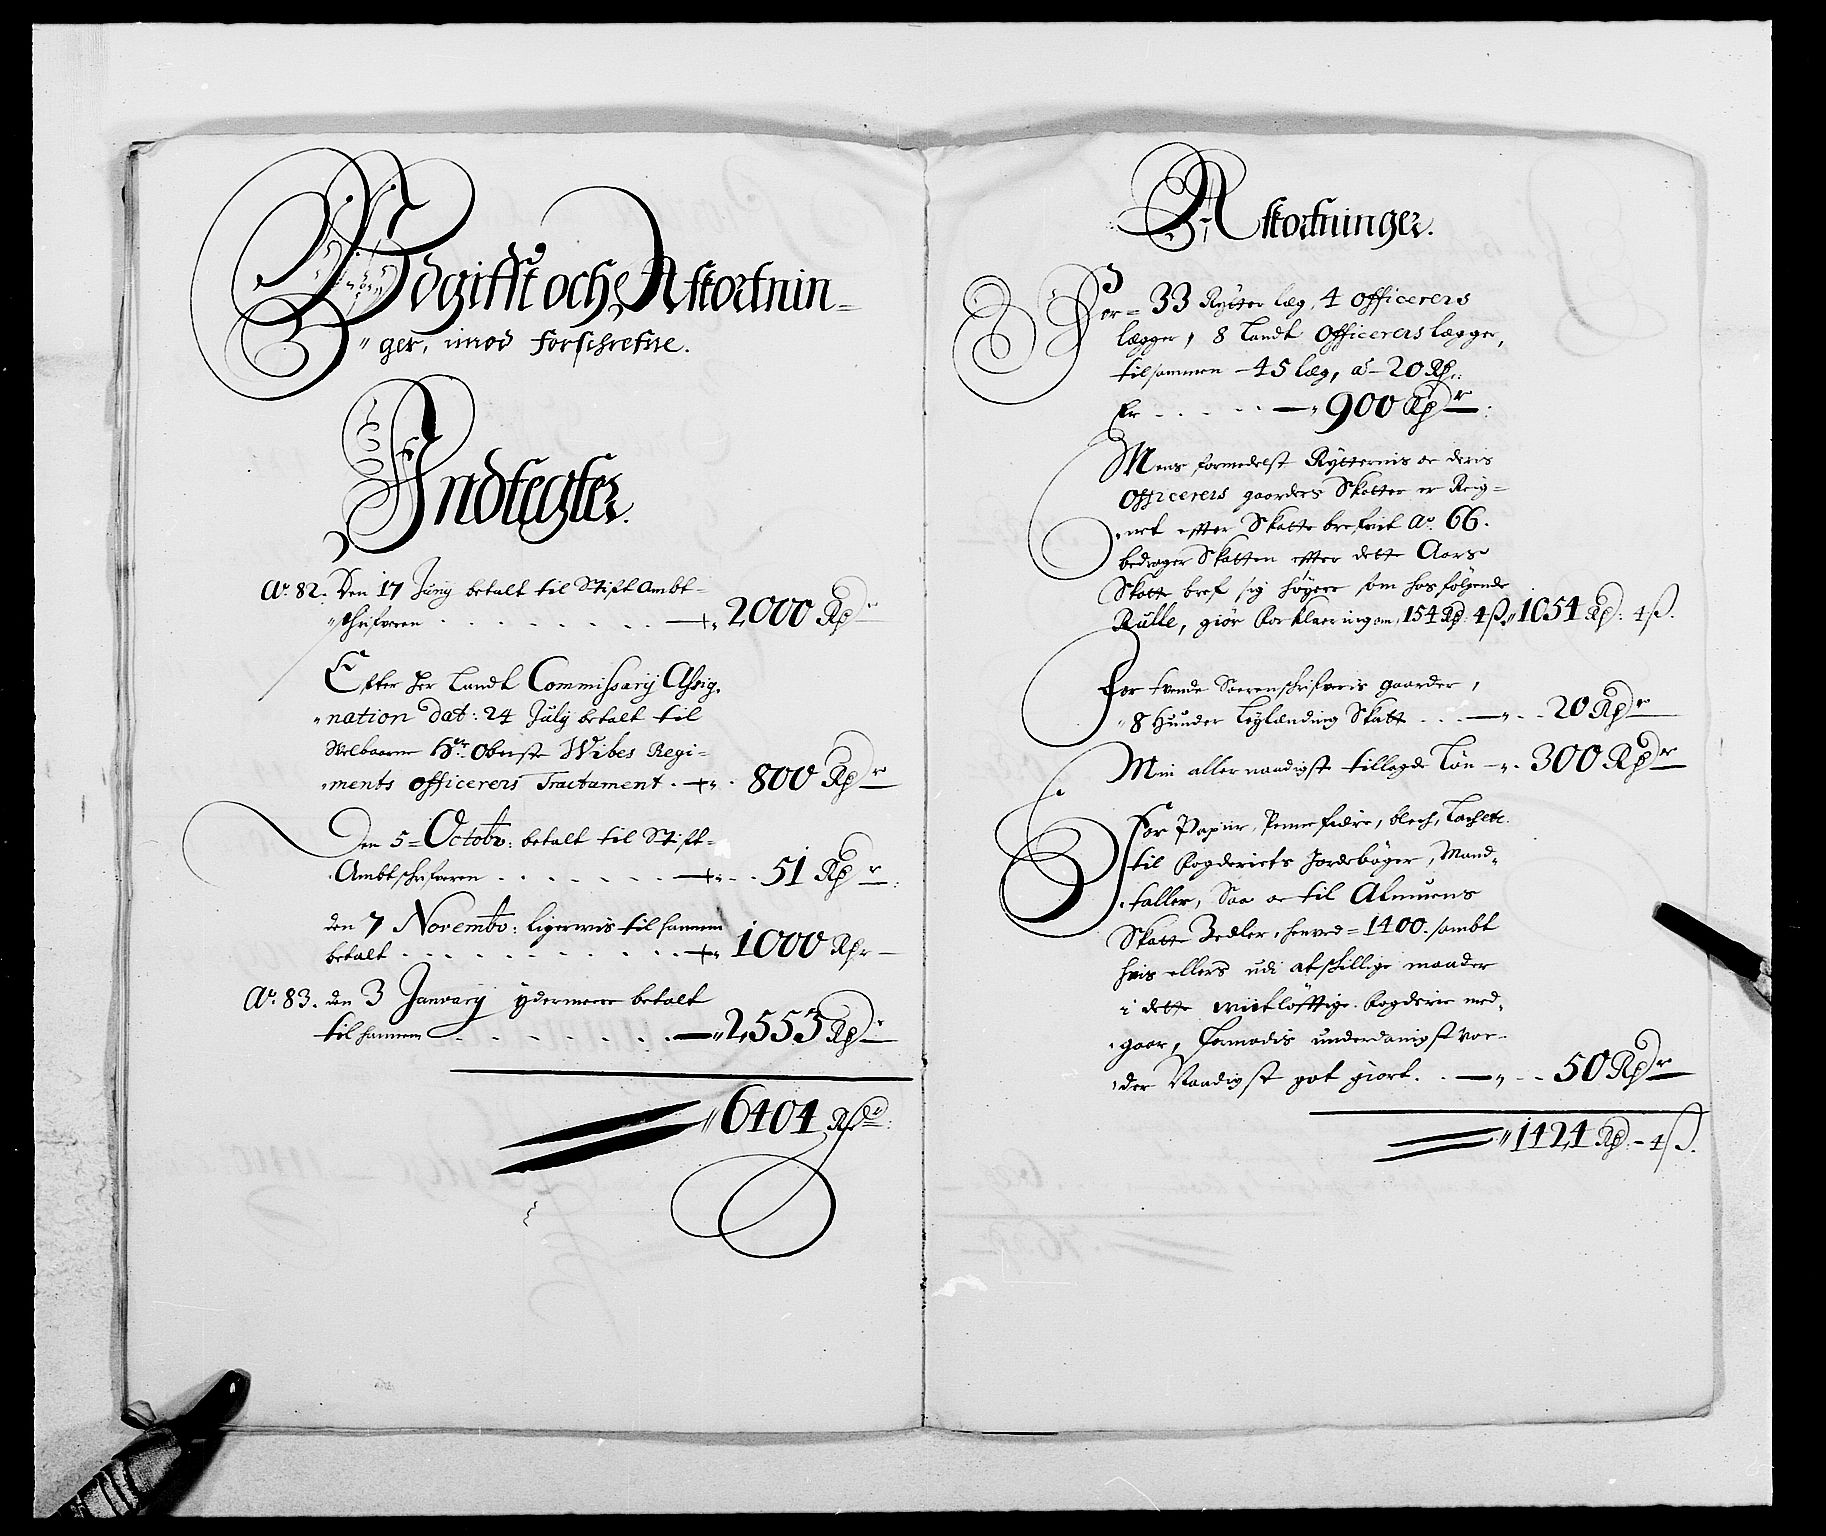 Udgifft och Affkortnin=
"ger, imod forschrefne.
Indtegter.
Ao. 82. Den 17 Junij betalt til Stift Ambt=
"schrifveren . . . . . . . . . 2000 Rdr
Efter Her Landt Commissarij Assig.
"nation Dat: 24 Julij betalt til
Welbaarne Hr. Oberste Wibes Regi=
"ments officerers Tractament . . 800 Rdr
Den 5= Octobr: betalt til Stift=
Ambtschrifveren . . . . . . . . 51 Rdr
den 7 Novembr: ligerwis til hannem
betalt . . . . . . . . . . . 1000 Rdr
Ao. 83. den 3 January ÿdermeere betalt
til hannem . . . . . . . . " 2553 Rdr
" 6404 Rdr
Affkortninger.
For= 33 Rytter læg, 4 officerers
lægger, 8 Landt Officerers lægger,
tilsammen - 45 læg, a - 20 Rd.:
Er . . . . . " 900 Rdr:
Mens formedelst Rÿtternis oc deris
Officerers gaarders Skatter er Reig=
"net efter Skatte brefvit Ao. 66.
bedrager Skatten efter dette Aars
Skatte bref sig höyere som hosfölgende
Rulle, giör forklaering om, 154 Rd: 4 ß " 1054 Rd: 4 ß.
For tvende Sorenschrifveris gaarder,
"8 Hunder Leylænding Skatt . . . - " . . 20 Rdr
Min allernaadigst tillagde Lön - " . 300 Rdr
For Papiir, Penne fædre, blech, Lach etc.
til fogderiets Jordebøger, Mand=
"taller, Saa oc til Almuens
Skatte Zedler, henved = 1400. sambt
hvis ellers udi atschillige maader
i dette wiitløfftige fogderie med.
"gaar, formodis underdanigst vor=
"der Naadigst got giort. . - " . . 50 Rdr
" 1424 Rd: - 4 ß.